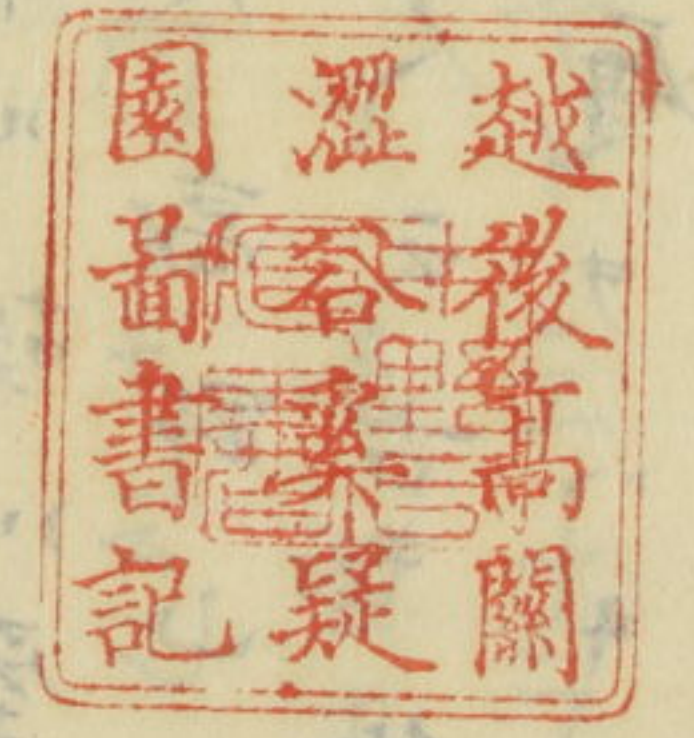 越後高關
澀谷奚疑
園啚書記